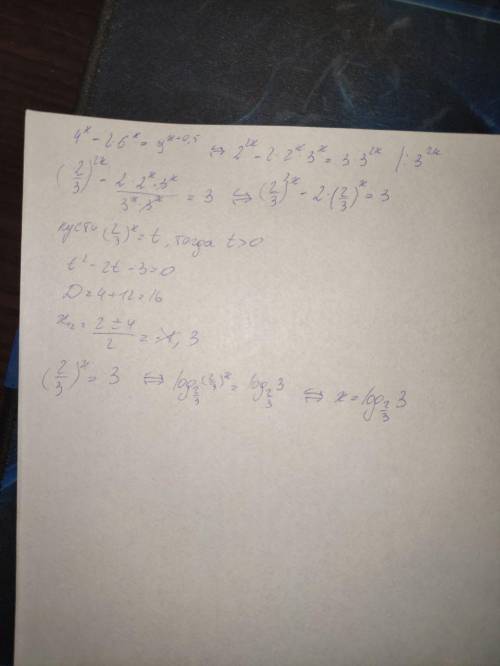 4^x - 2·6^x = 9^{x+0,5} ⇔ 2^{2x} - 2·2^x·3^x = 3·3^{2x} |: 3^{2x}
(2/3)^{2x} - (2·2^x·3^x)/(3^x·3^x) = 3 ⇔ (2/3)^{2x} - 2·(2/3)^x = 3
пусть (2/3)^x = t, тогда t>0
t² - 2t - 3 = 0
D = 4 + 12 = 16
x₁,₂ = (2 ± 4)/2 = -1, 3
(2/3)^x = 3 ⇔ log_{2/3} (2/3)^x = log_{2/3} 3 ⇔ x = log_{2/3} 3